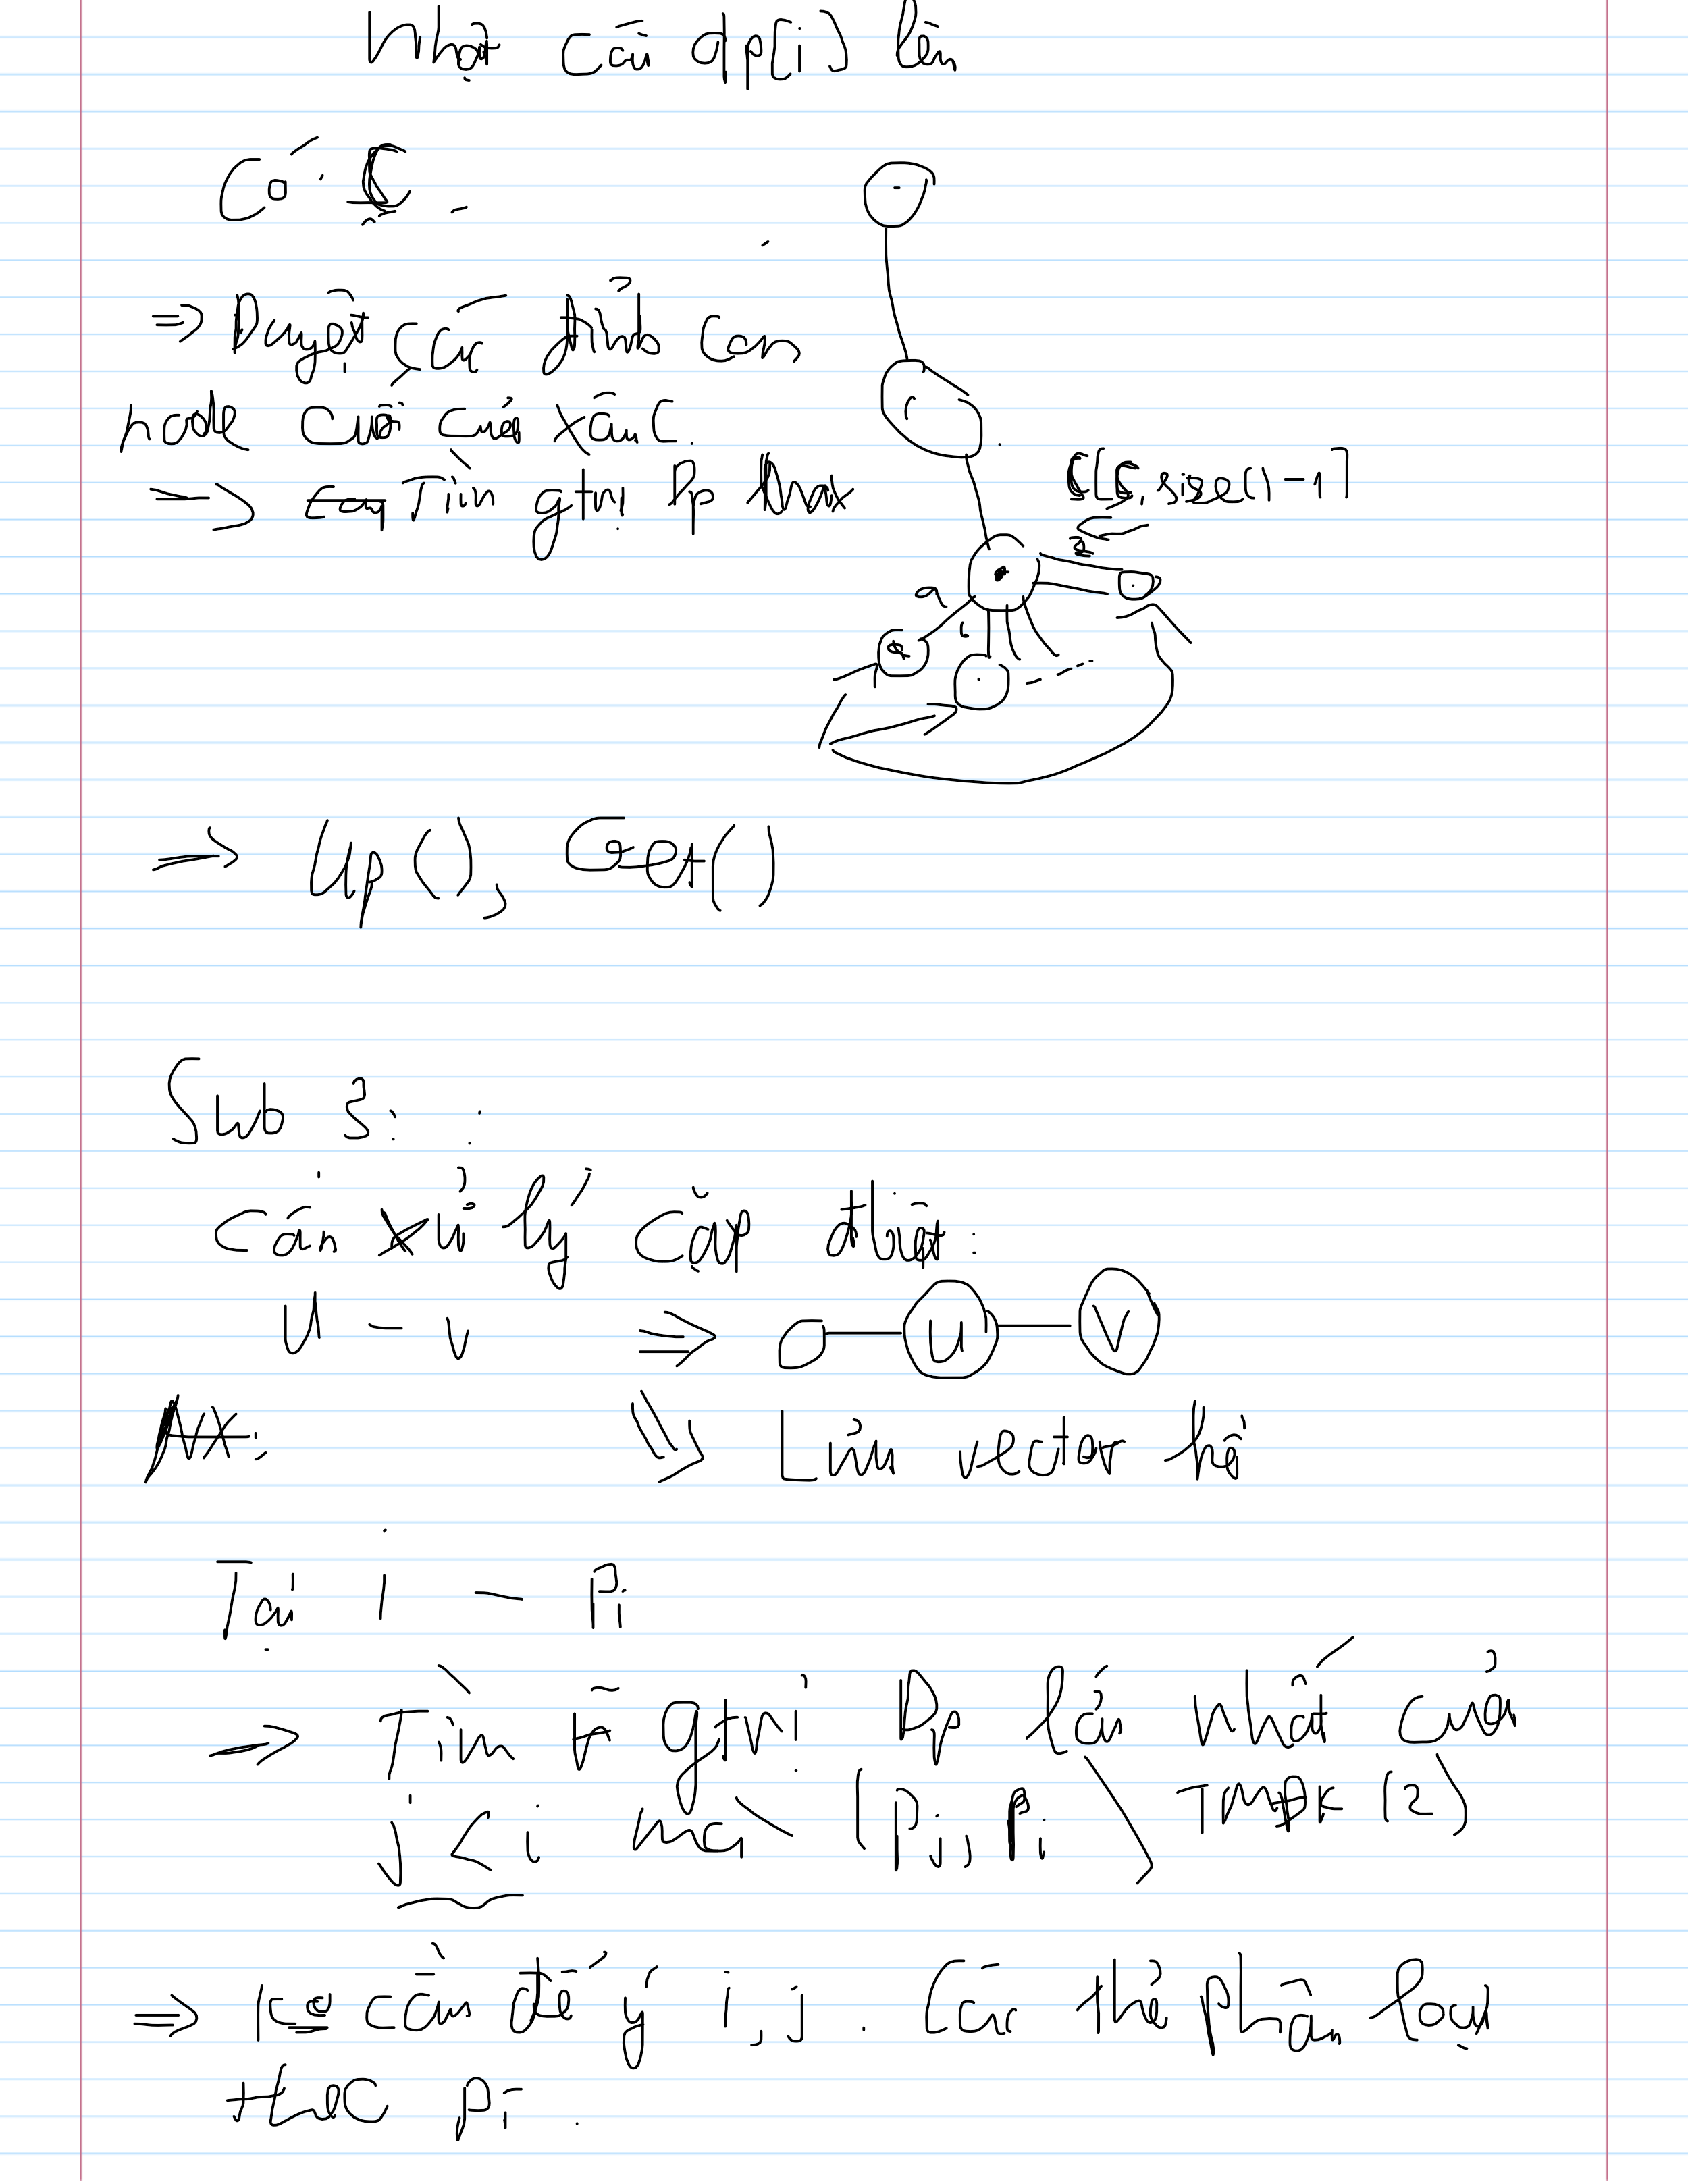 Nhật cần dp[i] lên
Có: C
⇒ Duyệt các đỉnh con
node cuối của xâu C.
⇒ Tìm gtrị Dp Max
C[C.size()-1]
a
b
z
⇒ Up(), Get()
Sub 3:
Cần xử lý cặp đbiệt:
U - V ⇒ U V
NX: Lưu vector kề
Tại i - Pi
⇒ Tìm gtrị Dp lớn nhất của
j < i mà (Pj, Pi) TMĐK (2)
⇒ Ko cần để ý i, j. Các thể phân loại
theo Pi.